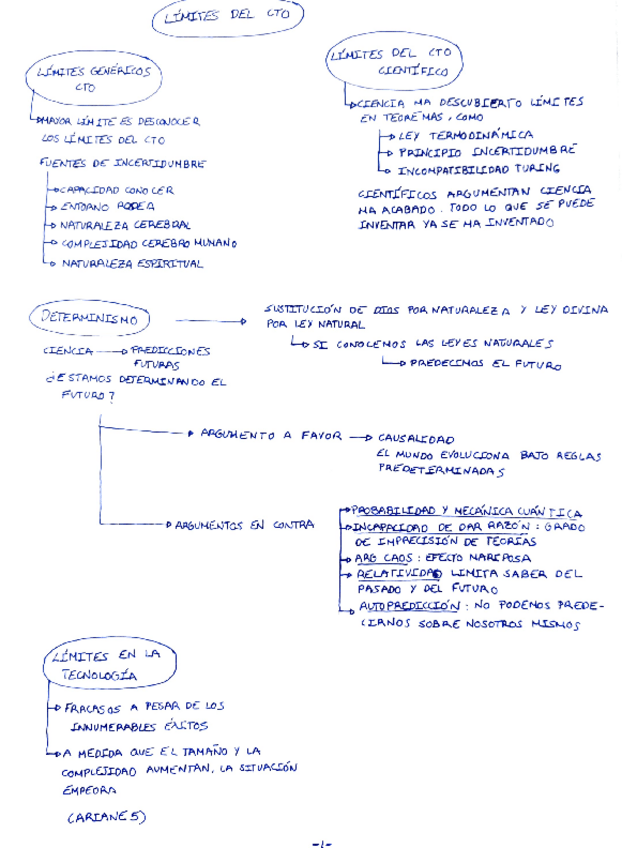 LÍMITES DEL CTO
LÍMITES GENÉRICOS
CTO
MAYOR LÍMITE ES DESCONOCER
LOS LÍMITES DEL CTO
FUENTES DE INCERTIDUMBRE
CAPACIDAD CONOCER
ENTORNO RODEA
NATURALEZA CEREBRAL
COMPLEJIDAD CEREBRO HUMANO
NATURALEZA ESPIRITUAL
LÍMITES DEL CTO
CIENTÍFICO
CIENCIA HA DESCUBIERTO LÍMITES
EN TEOREMAS, COMO
LEY TERMODINÁMICA
PRINCIPIO INCERTIDUMBRE
INCOMPATIBILIDAD TURING
CIENTÍFICOS ARGUMENTAN CIENCIA
HA ACABADO. TODO LO QUE SE PUEDE
INVENTAR YA SE HA INVENTADO
DETERMINISMO
SUSTITUCIÓN DE DIOS POR NATURALEZA Y LEY DIVINA
POR LEY NATURAL
SI CONOCEMOS LAS LEYES NATURALES
PREDECIMOS EL FUTURO
CIENCIA → PREDICCIONES
FUTURAS
¿ESTAMOS DETERMINANDO EL
FUTURO?
ARGUMENTO A FAVOR → CAUSALIDAD
EL MUNDO EVOLUCIONA BAJO REGLAS
PREDETERMINADAS
ARGUMENTOS EN CONTRA
PROBABILIDAD Y MECÁNICA CUÁNTICA
INCAPACIDAD DE DAR RAZÓN: GRADO
DE IMPRECISIÓN DE TEORÍAS
ARG CAOS: EFECTO MARIPOSA
RELATIVIDAD LIMITA SABER DEL
PASADO Y DEL FUTURO
AUTOPREDICCIÓN: NO PODEMOS PREDE-
CIRNOS SOBRE NOSOTROS MISMOS
LÍMITES EN LA
TECNOLOGÍA
FRACASOS A PESAR DE LOS
INNUMERABLES ÉXITOS
A MEDIDA QUE EL TAMAÑO Y LA
COMPLEJIDAD AUMENTAN, LA SITUACIÓN
EMPEORA
(ARIANE 5)
-1-